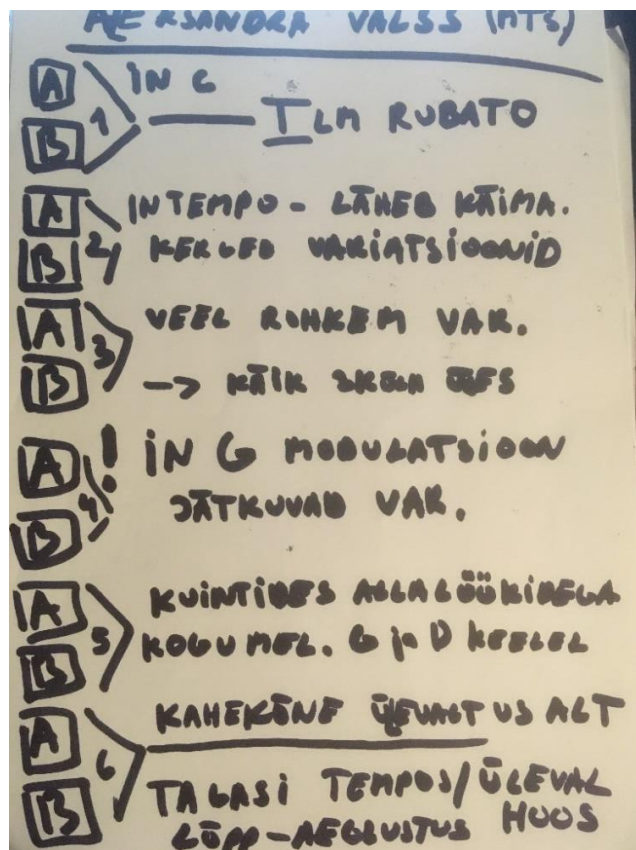 ALEKSANDRA VALSS (MTS)
A
B
1
IN C
ILM RUBATO
A
B
2
IN TEMPO - LÄHEB KÄIMA.
KERGED VARIATSIOONID
A
B
3
VEEL ROHKEM VAR.
-> KÄIK
A
B
4
! IN G MODULATSIOON
JÄTKUVAD VAR.
A
B
5
KVINTIDES ALLALÖÖKIDEGA
KOGU MEL. G ja D KEELEL
A
B
6
KAHEKÕNE ÜLEVALT VS ALT
TAGASI TEMPOS/ÜLEVAL
LÕPP-AEGLUSTUS HOOS